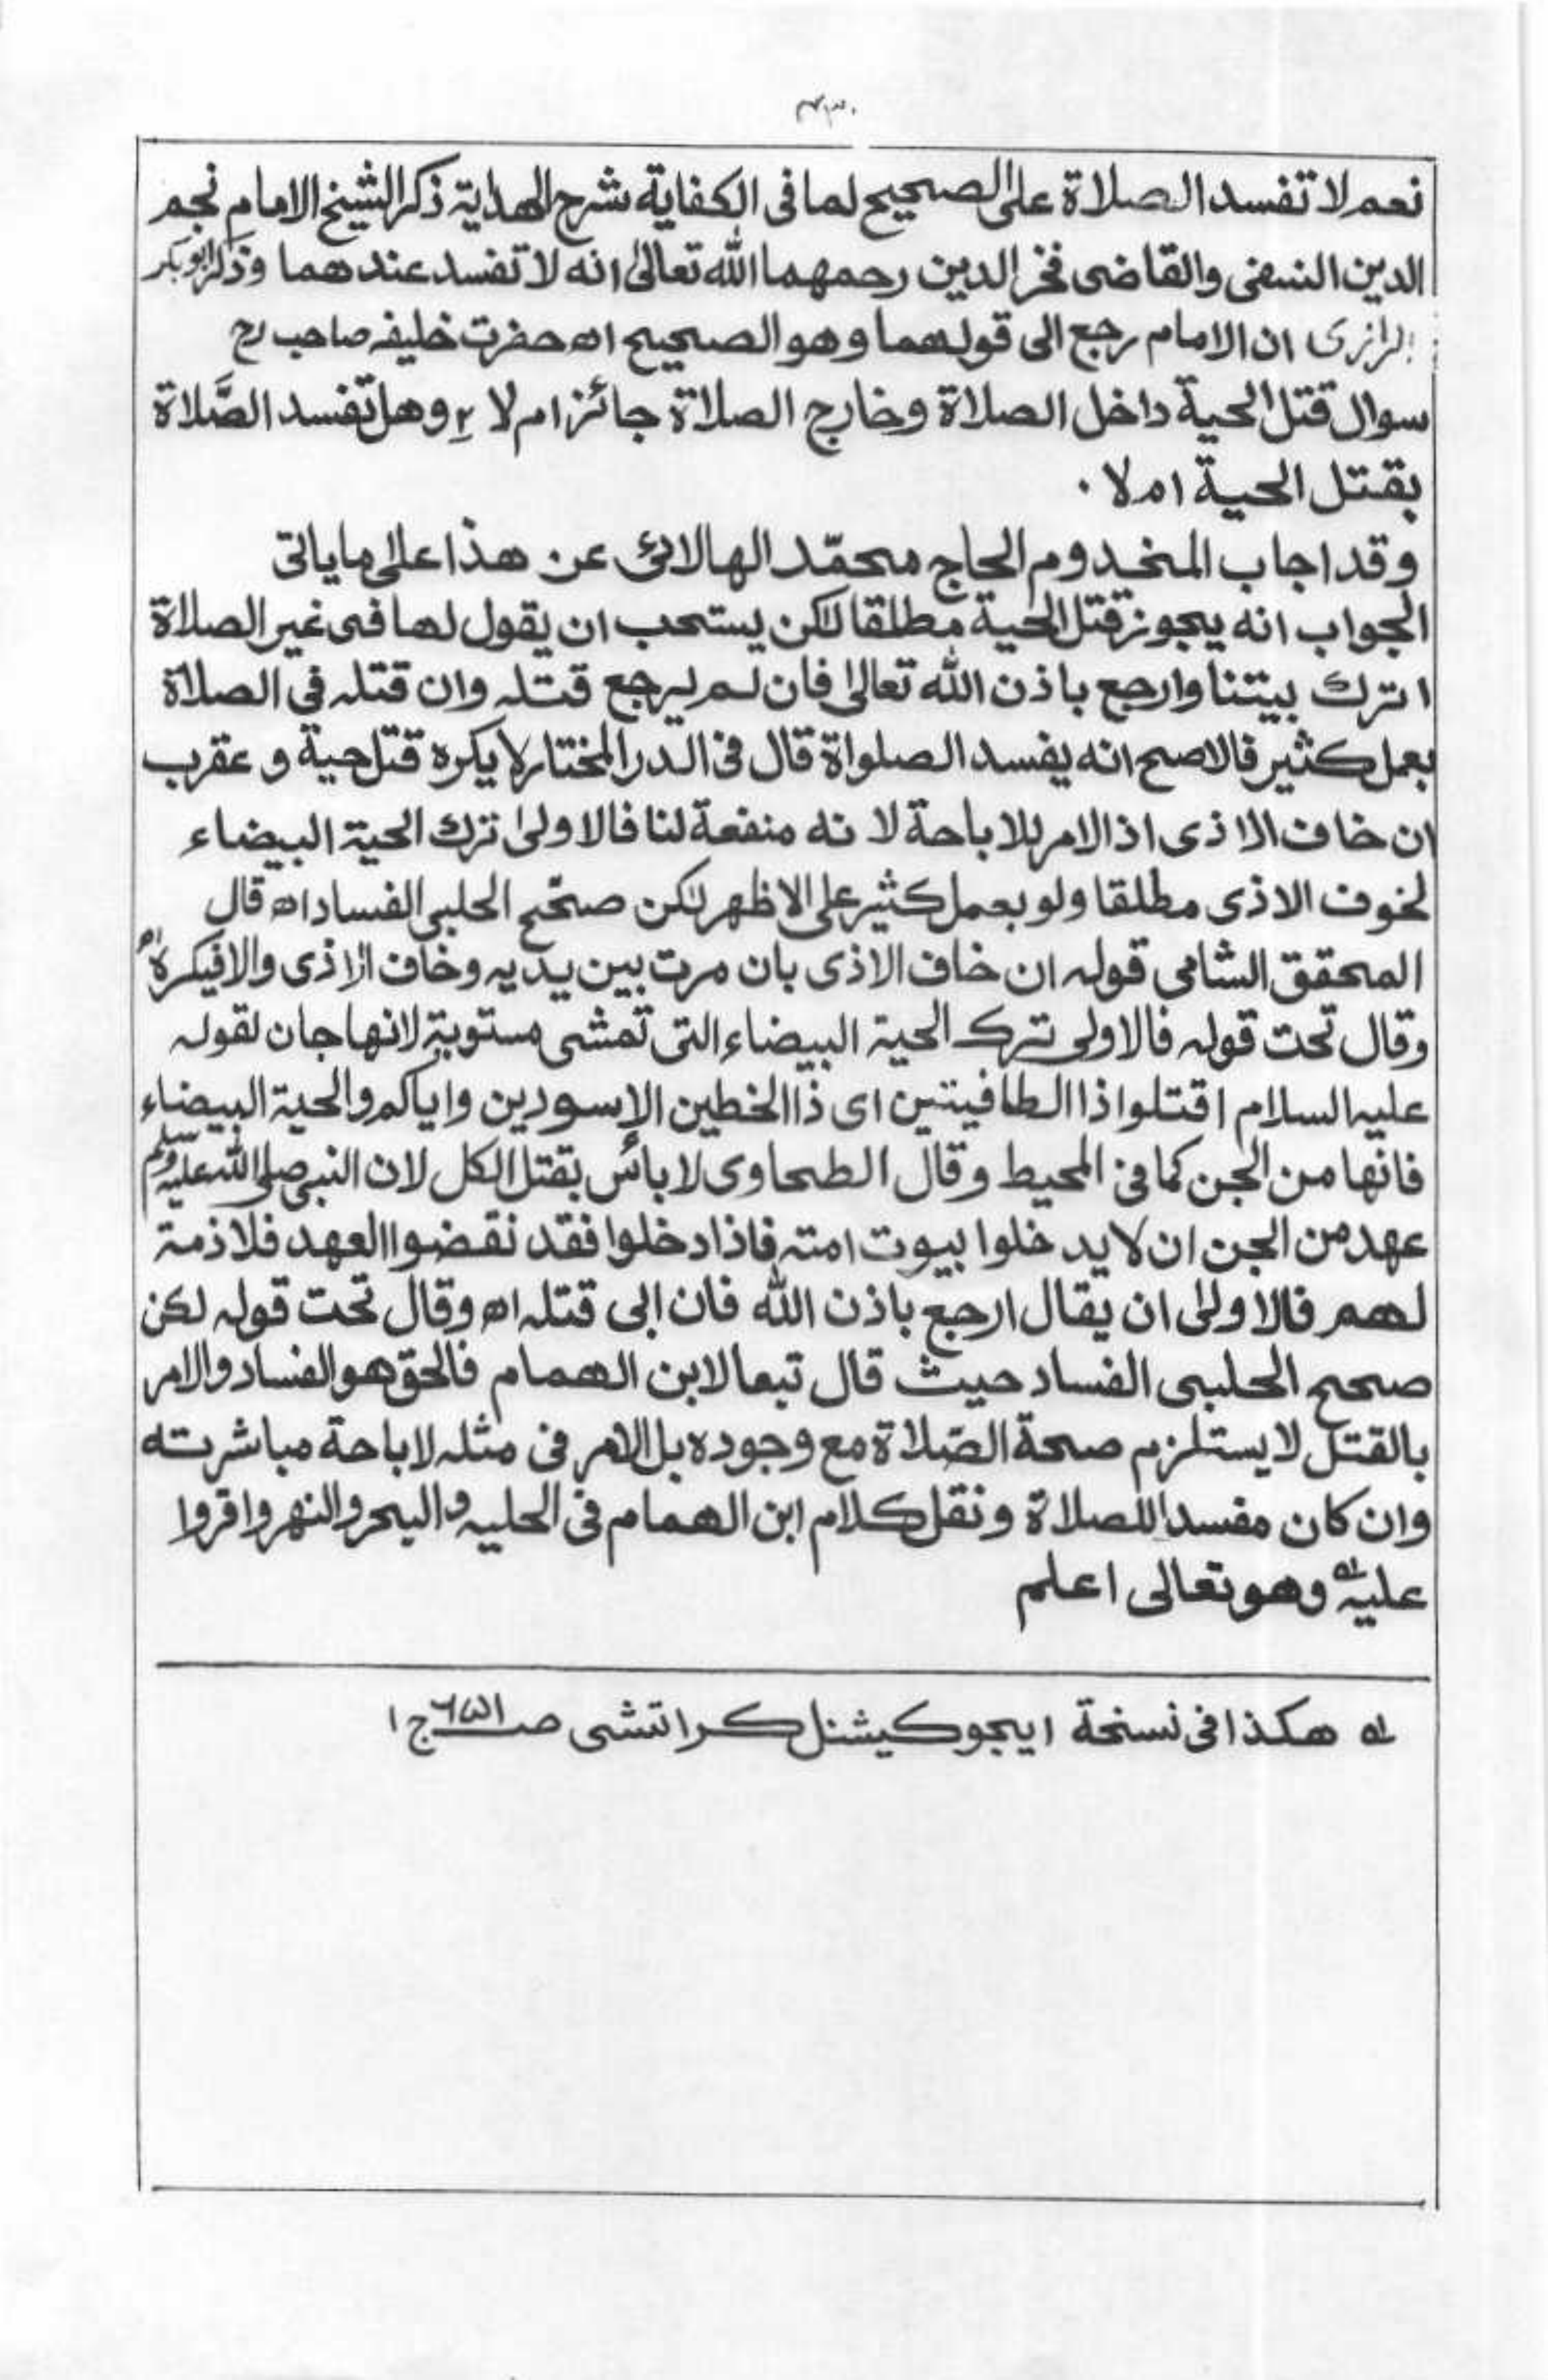 ۴۳۰
نعم لا تفسد الصلاة على الصحيح لما فى الكفاية شرح الهداية ذكر الشيخ الامام نجم
الدين النسفى والقاضى فخر الدين رحمهما الله تعالى انه لا تفسد عندهما وذكر ابو بكر
الرازى ان الامام رجع الى قولهما وهو الصحيح اه حضرت خليفه صاحب رح
سوال قتل الحية داخل الصلاة وخارج الصلاة جائز ام لا ؟ وهل تفسد الصَّلاة
بقتل الحية ام لا ۰
وقد اجاب المخدوم الحاج محمّد الهالائى عن هذا على ما ياتى
الجواب انه يجوز قتل الحية مطلقا لكن يستحب ان يقول لها فى غير الصلاة
اترك بيتنا وارجع باذن الله تعالى فان لم يرجع قتله وان قتله في الصلاة
بعمل كثير فالاصح انه يفسد الصلواة قال فى الدر المختار لا يكره قتل حية و عقرب
ان خاف الاذى اذ الامر للاباحة لانه منفعة لنا فالاولى ترك الحية البيضاء
لخوف الاذى مطلقا ولو بعمل كثير على الاظهر لكن صحّح الحلبى الفساد اه قال
المحقق الشامى قوله ان خاف الاذى بان مرت بين يديه وخاف الاذى والا فيكره اه
وقال تحت قوله فالاولى ترك الحية البيضاء التى تمشى مستوية لانها جان لقوله
عليه السلام اقتلوا ذا الطافيتين اى ذا الخطين الاسودين واياكم والحية البيضاء
فانها من الجن كما فى المحيط وقال الطحاوى لا بأس بقتل الكل لان النبى صلى الله عليه وسلم
عهد من الجن ان لا يدخلوا بيوت امته فاذا دخلوا فقد نقضوا العهد فلا ذمة
لهم فالاولى ان يقال ارجع باذن الله فان ابى قتله اه وقال تحت قوله لكن
صحح الحلبى الفساد حيث قال تبعا لابن الهمام فالحق هو الفساد والامر
بالقتل لا يستلزم صحة الصّلاة مع وجوده بل الامر فى مثله لاباحة مباشرته
وان كان مفسدا للصلاة ونقل كلام ابن الهمام فى الحليه والبحر والنهر واقروا
عليه اه وهو تعالى اعلم
له هكذا فى نسخة ايجوكيشنل كراتشى صـ ج ا